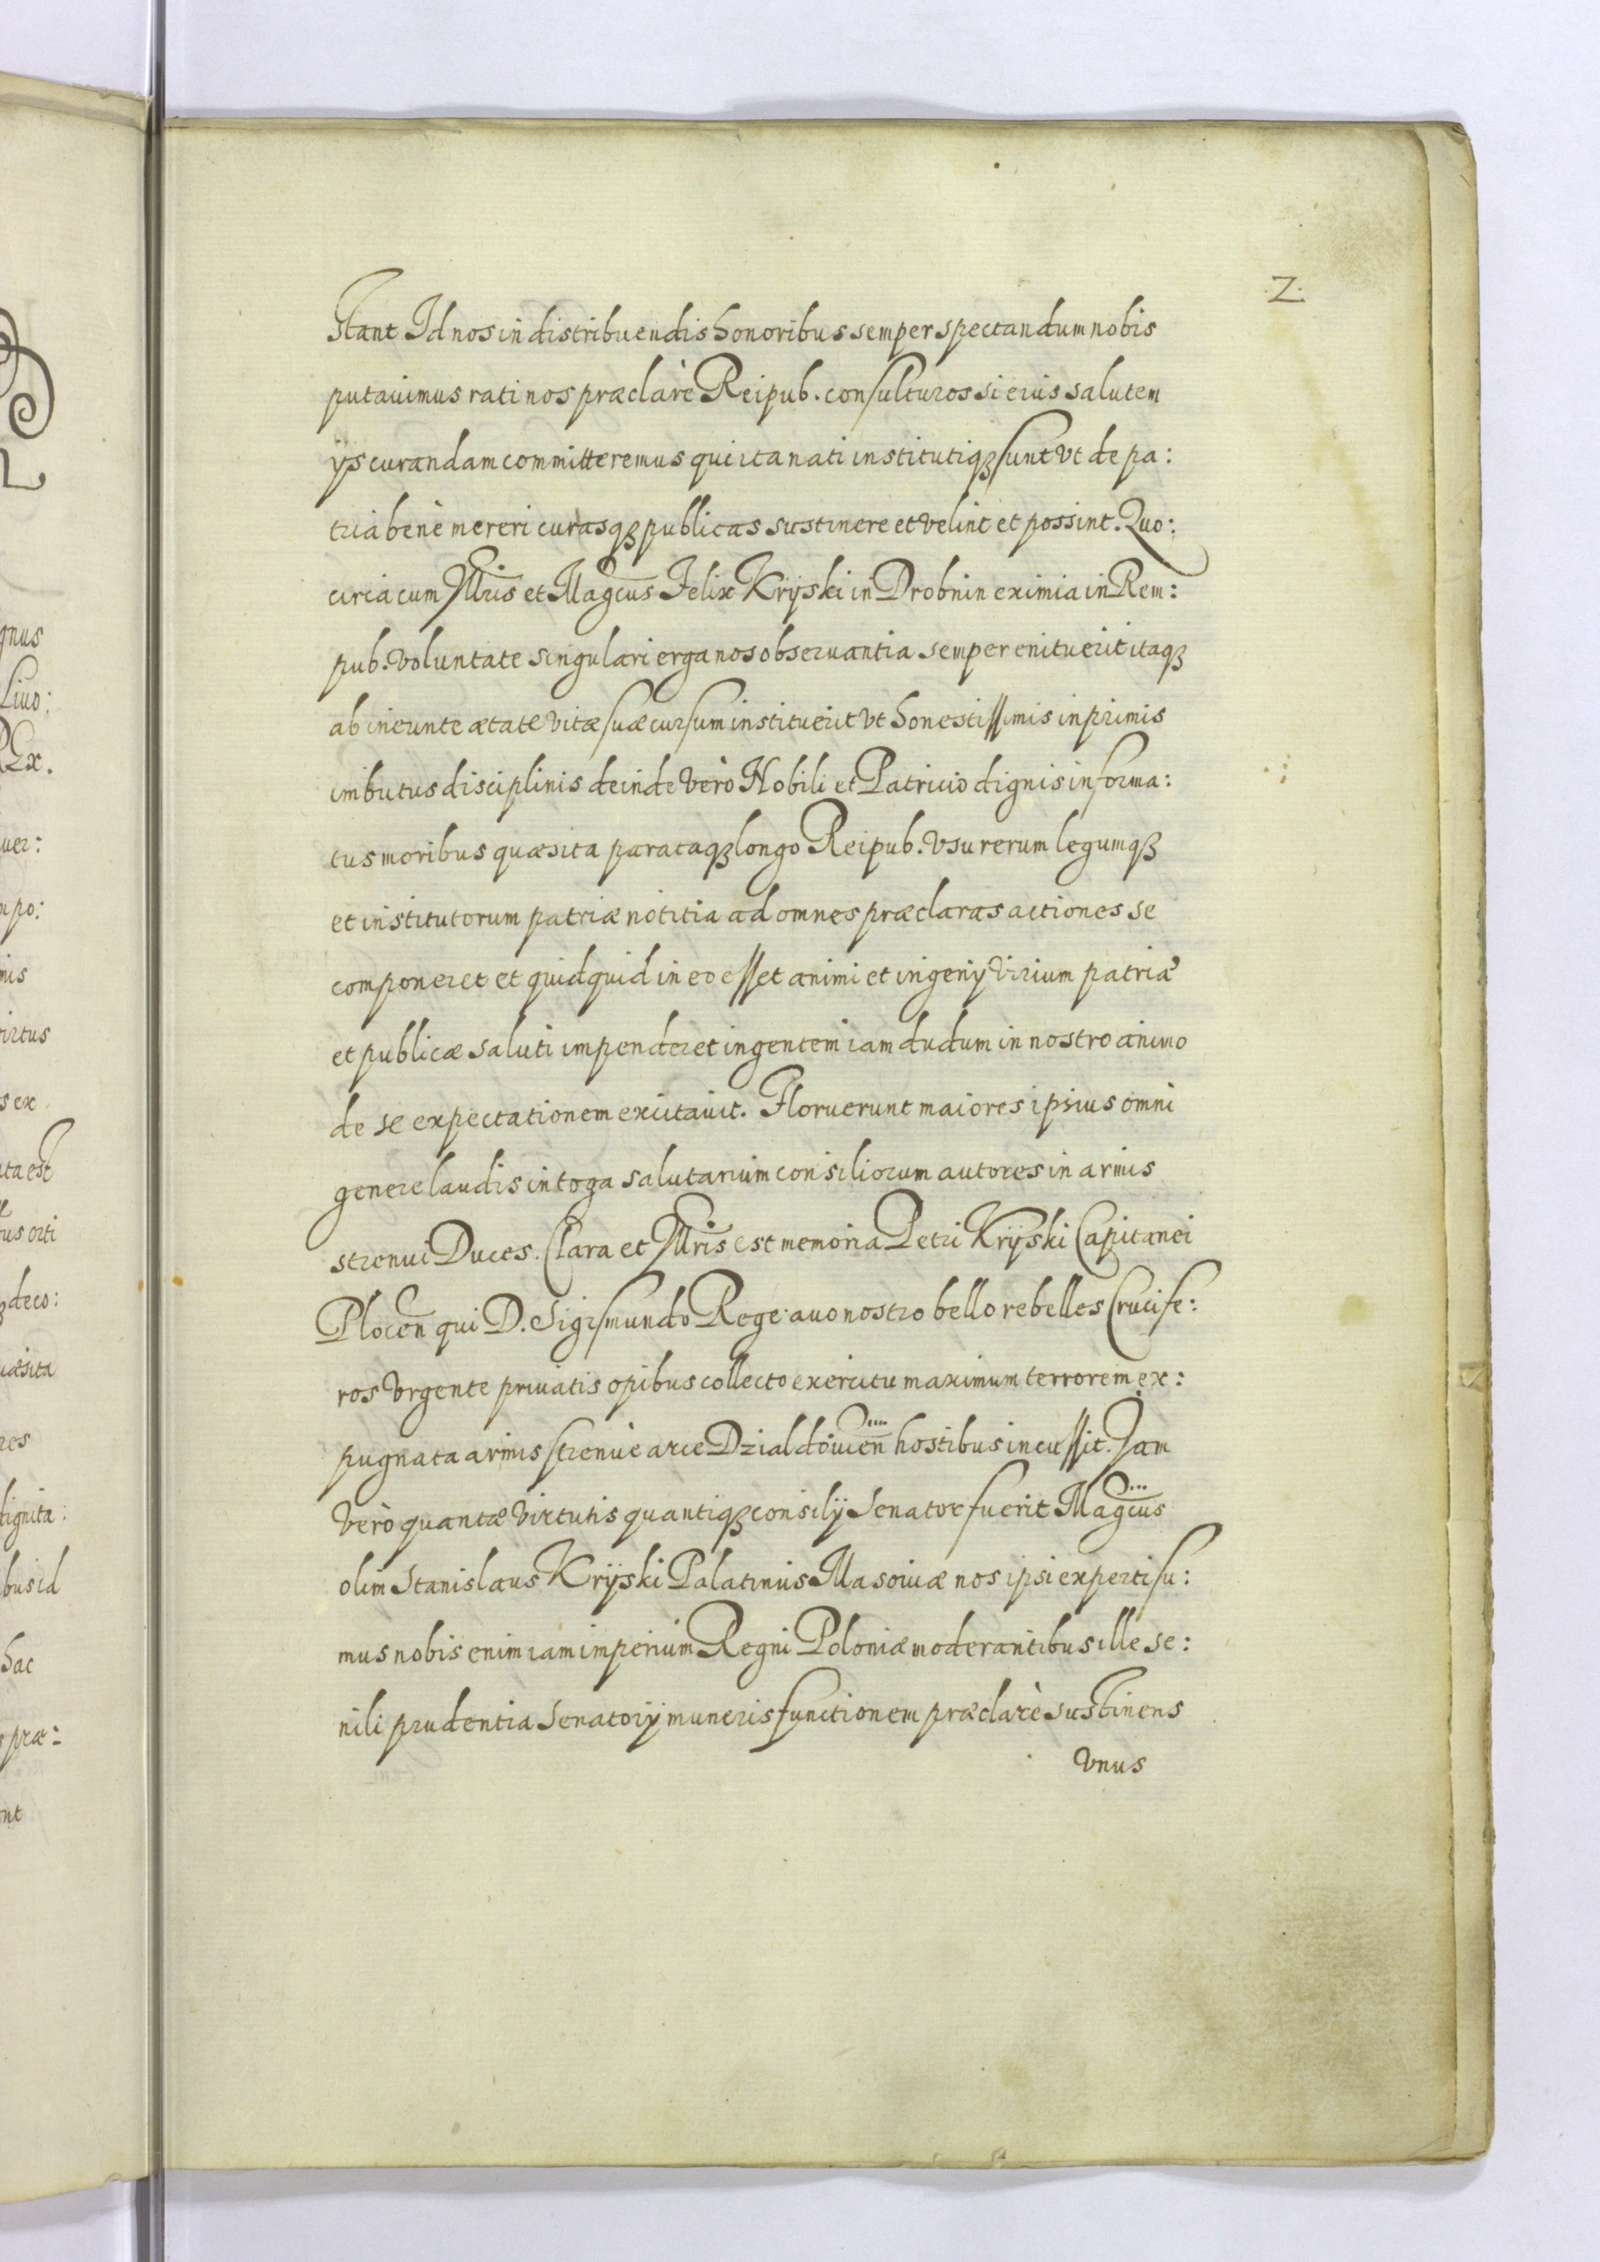 .2.
stant Id nos in distribuendis honoribus semper spectandum nobis
putauimus rati nos præclarè Reipub. consulturos si eius salutem
ijs curandam committeremus qui ita nati institutiq₃ sunt vt de pa:
tria benè mereri curasq₃ publicas sustinere et velint et possint. Quo:
circa cum Illris et Magcus Felix Kryski in Drobnin eximia in Rem:
pub. voluntate singulari erga nos obseruantia semper enituerit itaq₃
ab ineunte ætate vitæ suæ cursum instituerit vt honestissimis inprimis
imbutus disciplinis deinde verò Nobili et Patricio dignis informa:
tus moribus quæsita parataq₃ longo Reipub. vsu rerum legumq₃
et institutorum patriæ notitia ad omnes præclaras actiones se
componeret et quidquid in eo esset animi et ingenij virium patriæ
et publicæ saluti impenderet ingentem iam dudum in nostro animo
de se expectationem excitauit. Floruerunt maiores ipsius omni
genere laudis in toga salutarium consiliorum autores in armis
strenui Duces. Clara et Illris est memoria Petri Kryski Capitanei
Plocen qui D. Sigismundo Rege auo nostro bello rebelles Crucife:
ros vrgente priuatis opibus collecto exercitu maximum terrorem ex:
pugnata armis strenuè arce Dzialdouien hostibus incussit. Jam
verò quantæ virtutis quantiq₃ consilij Senator fuerit Magcus
olim Stanislaus Kryski Palatinus Masouiæ nos ipsi experti su:
mus nobis enim iam imperium Regni Poloniæ moderantibus ille se:
nili prudentia Senatorij muneris functionem præclarè sustinens
vnus